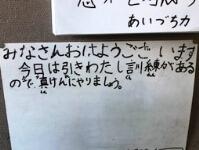 あいづちか
みなさんおはようございます
今日は引きわたし訓練がある
ので、真けんにやりましょう。